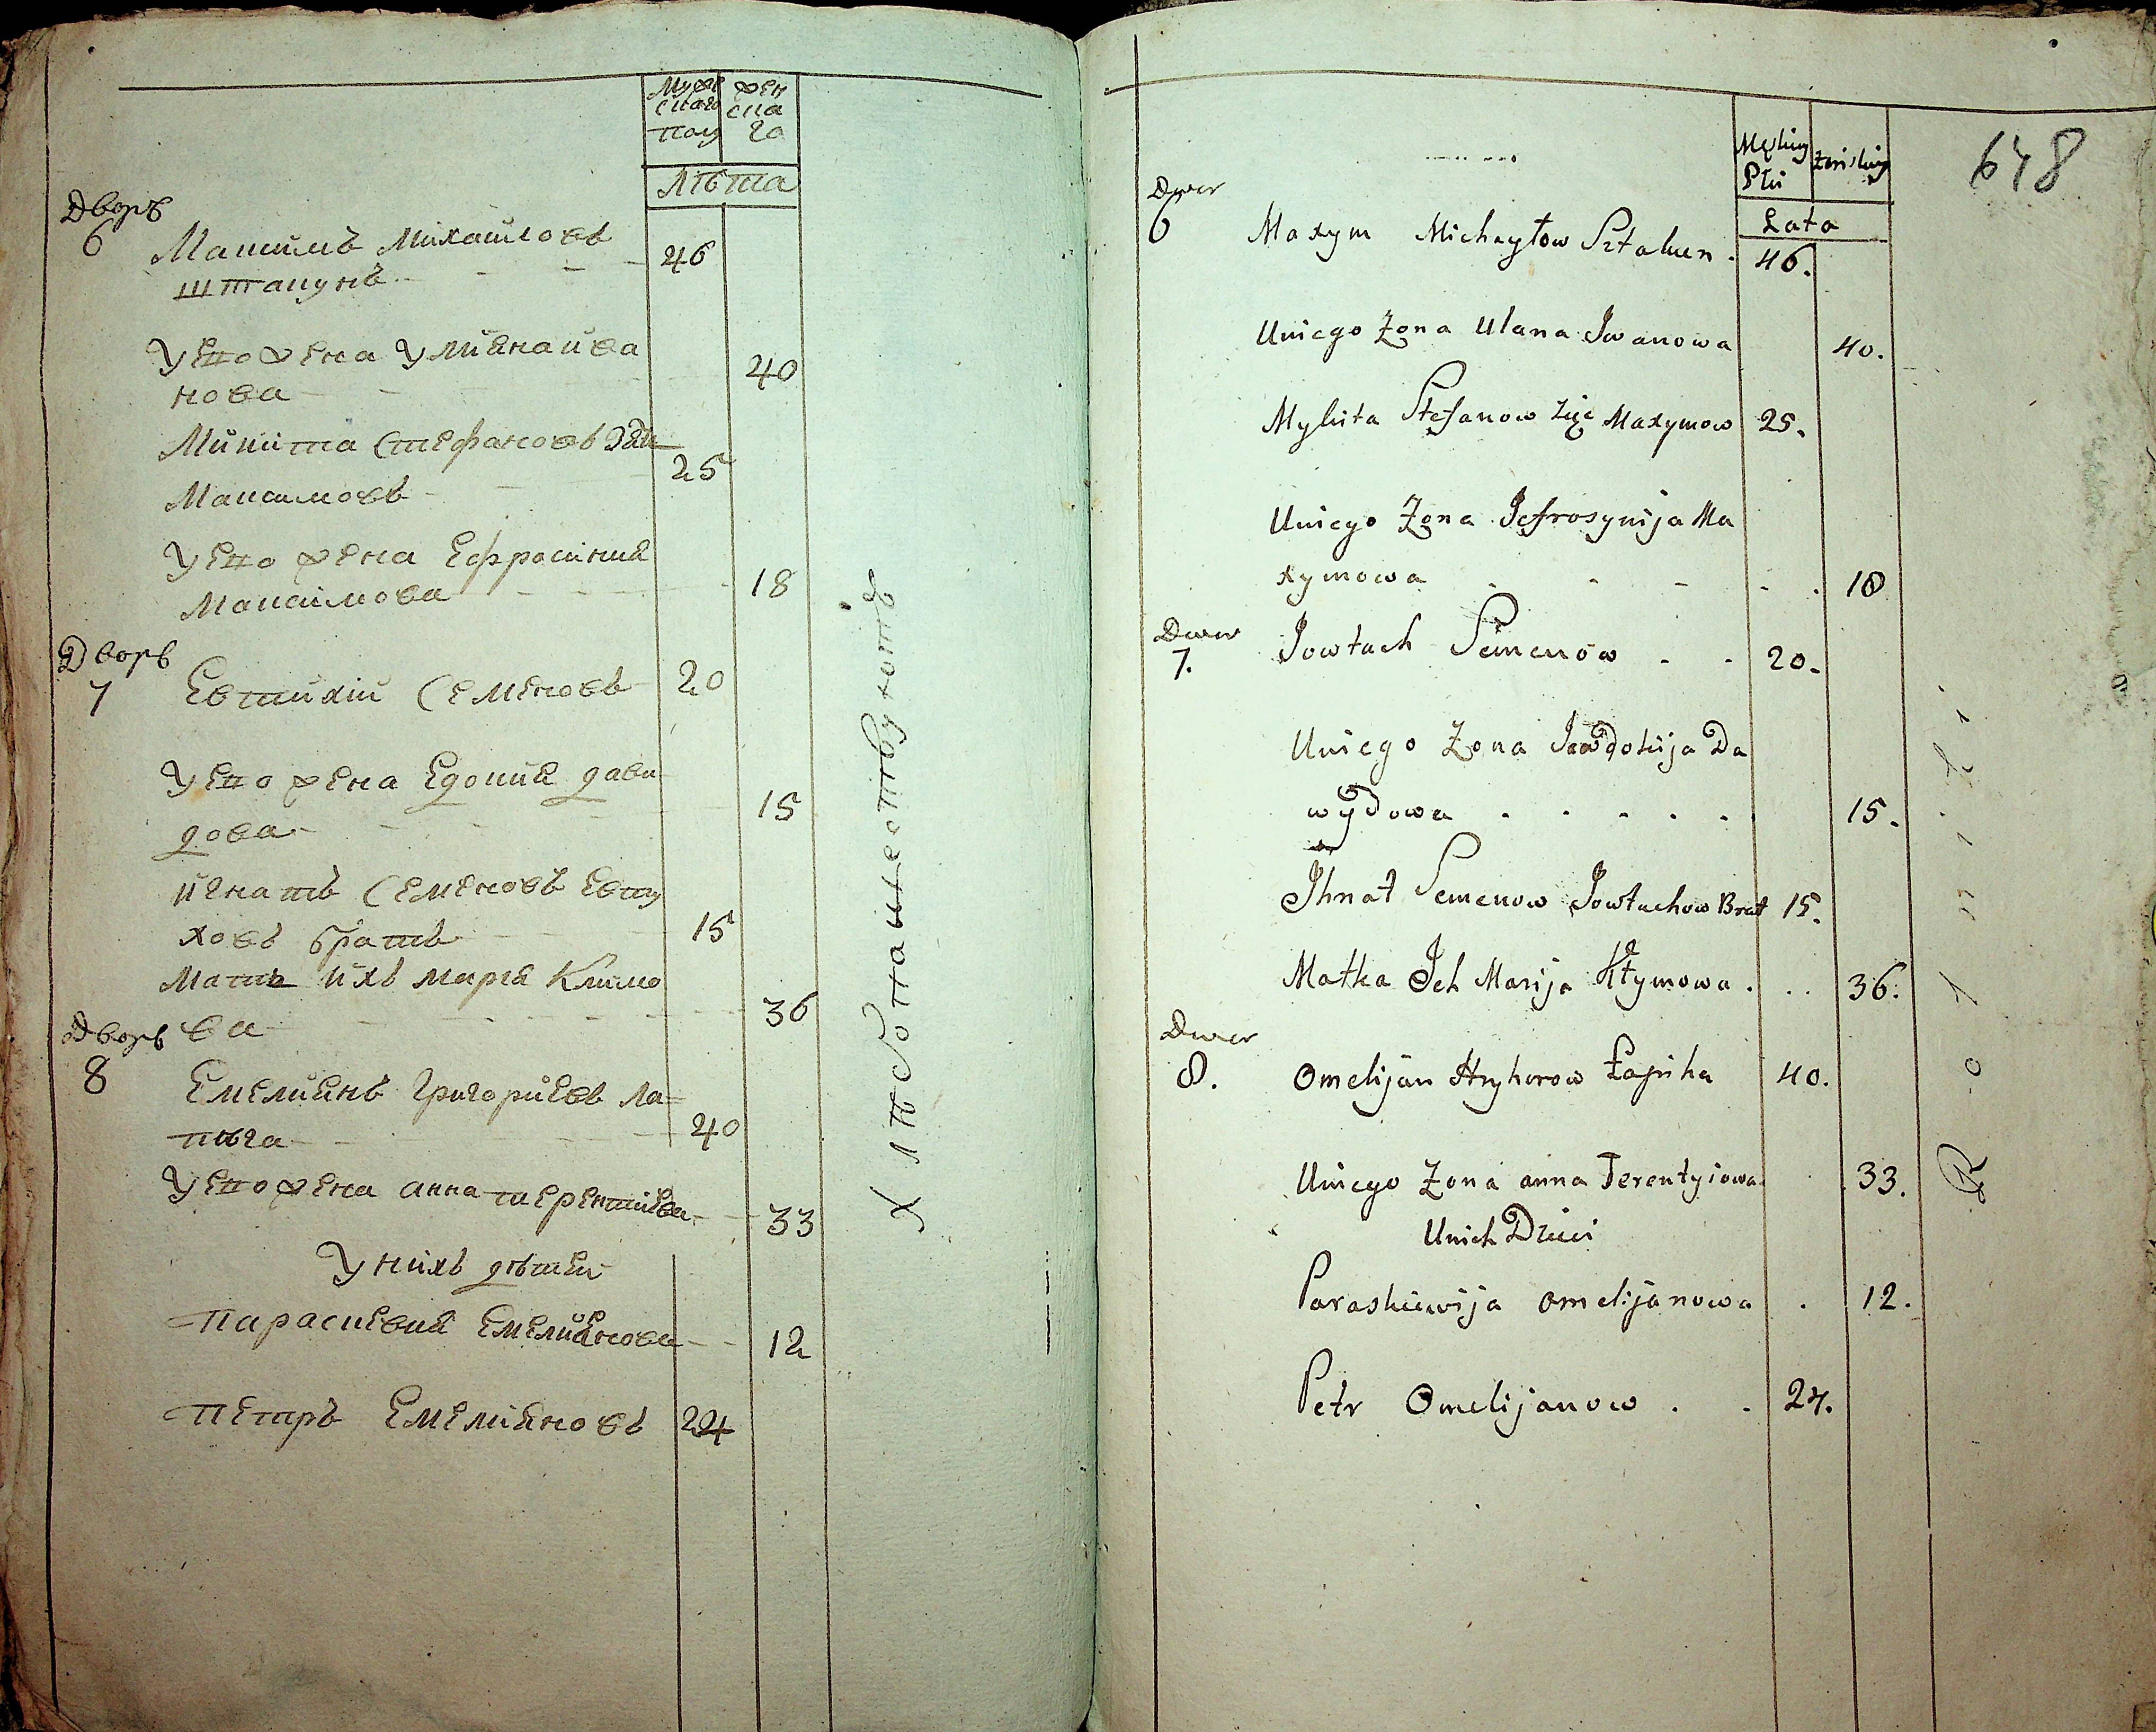 Мужескаго полу
женскаго
лѣта
Дворъ
6
Максимъ Михаиловъ
штакунъ
46
Унего жена Улияна ива
нова
40
Микита Стефановъ зять
Максимовъ
25
Унего жена Ефросиния
Максимова
18
Дворъ
7
Евтихий Семеновъ
20
Унего жена Едокия дави
дова
15
игнатъ Семеновъ Евту
ховъ братъ
15
Мать ихъ мария Климо
ва
36
Дворъ
8
Емелиянъ григориевъ ла=
пыга
40
Унего жена анна терентиева
33
Унихъ дѣтей
параскевия Емелиянова
12
петръ Емелияновъ
24
Męskiey Płci
Żenskiey
648
Lata
Dwor
6
Maxym Michayłow Sztakun
46.
Uniego Żona Ulana Iwanowa
40.
Mykita Stefanow Zięć Maxymow
25.
Uniego Żona Jefrosynija Ma
xymowa
18
Dwor
7.
Jowtuch Semenow
20.
Uniego Żona Jawdokija Da
wydowa
15.
Ihnat Semenow Jowtuchow Brat
15.
Matka Ich Marija Kłymowa
36.
Dwor
8.
Omelijan Hryhorow Łapiha
40.
Uniego Żona anna Terentyiowa
33.
Unich Dzieci
Paraskiewija omelijanowa
12.
Petr Omelijanow
24.